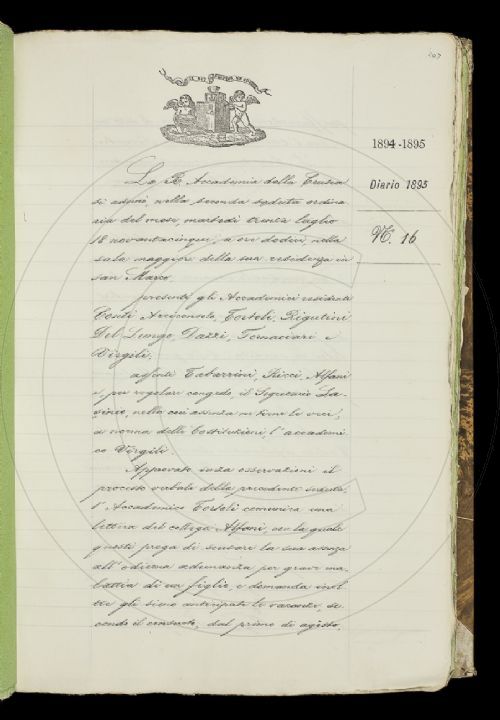 1894-1895
Diario 1895
N. 16
La R. Accademia della Crusca
si adunò, nella seconda seduta ordina
ria del mese, martedì trenta luglio
18 novantacinque, a ore dodici, nella
sala maggiore della sua residenza in
San Marco.
presenti gli Accademici residenti
Conti Arciconsolo, Tortoli, Rigutini
Del Lungo, Dazzi, Tornaciari e
Virgili.
assenti Tabarrini, Ricci, Alfani
e, per regolare congedo, il Segretario
nella cui assenza ne tiene le veci,
a norma delle Costituzioni, l'accademi
co Virgili.
Approvato senza osservazioni il
processo verbale della precedente seduta,
l'Accademico Tortoli comunica una
lettera del collega Alfani, con la quale
questi prega di scusare la sua assenza
all'odierna adunanza per grave ma
lattia di un figlio, e domanda inol
tre gli siano anticipate le vacanze, se
condo il consueto, dal primo di agosto.